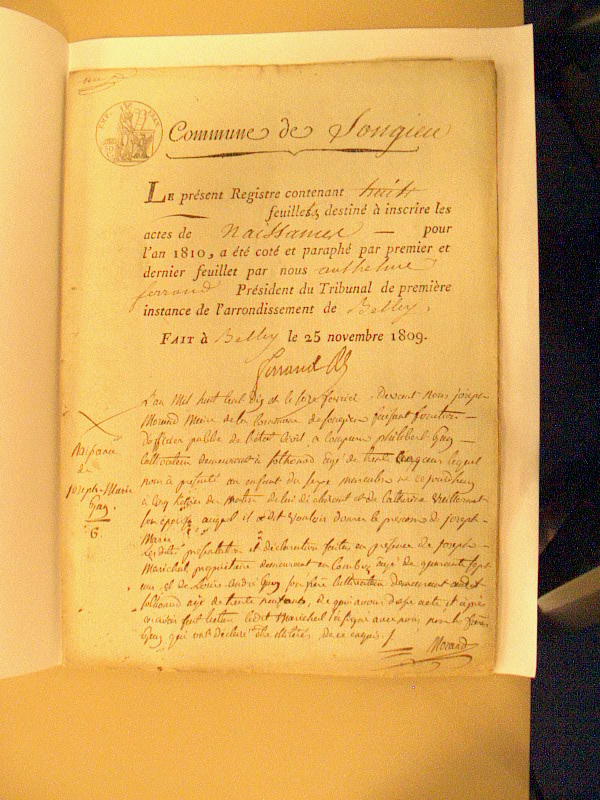 Commune de Songieu
LE présent Registre contenant huit
feuillets destiné à inscrire les
actes de Naissances — pour
l'an 1810, a été coté et paraphé par premier et
dernier feuillet par nous anthelme
ferrand Président du Tribunal de première
instance de l'arrondissement de Belley.
FAIT à Belley le 25 novembre 1809.
Ferrand
L'an Mil huit Cent dix et le seize fevrier. Devant nous joseph
Morand Maire de la Commune de songieu faisant fonction
D'officier public de l'état Civil, a Comparu philibert Guy
Cultivateur demeurant à sothonod agé de trente Cinq ans lequel
nous à présenté un enfant du sexe masculin né ce jourd'huy
à Cinq heures du matin de lui déclarant et de Catherine
son épouse auquel il a dit vouloir donner le prenom de joseph
Marie
Les dites présentation et déclaration faites en presence de joseph
Marichal propriétaire demeurant en Lombey agé de quarante sept
ans et de Louis André Guy son frère Cultivateur demeurant audit
sothonod agé de trente neuf ans, De quoi avons dressé acte et après
en avoir fait lecture ledit Marichal à signé avec nous non les freres
Guy qui ont déclaré être illiterés, de ce enquis.
Morand
Naissance
de
joseph-Marie
Guy.
6.